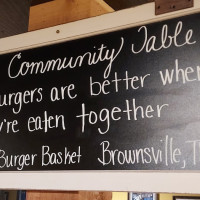 Community Table
urgers are better when
're eaten together
Burger Basket Brownsville, T